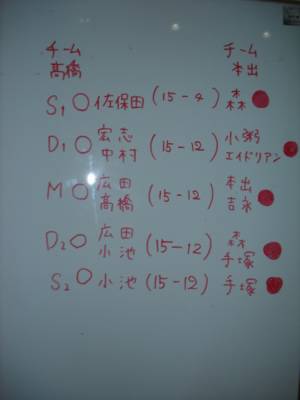 チーム 高橋
チーム 本出
S1 ○ 佐保田 (15-4) 森 ●
D1 ○ 宏志 中村 (15-12) 小粥 エイドリアン ●
M ○ 広田 高橋 (15-12) 本出 吉永 ●
D2 ○ 広田 小池 (15-12) 森 手塚 ●
S2 ○ 小池 (15-12) 手塚 ●